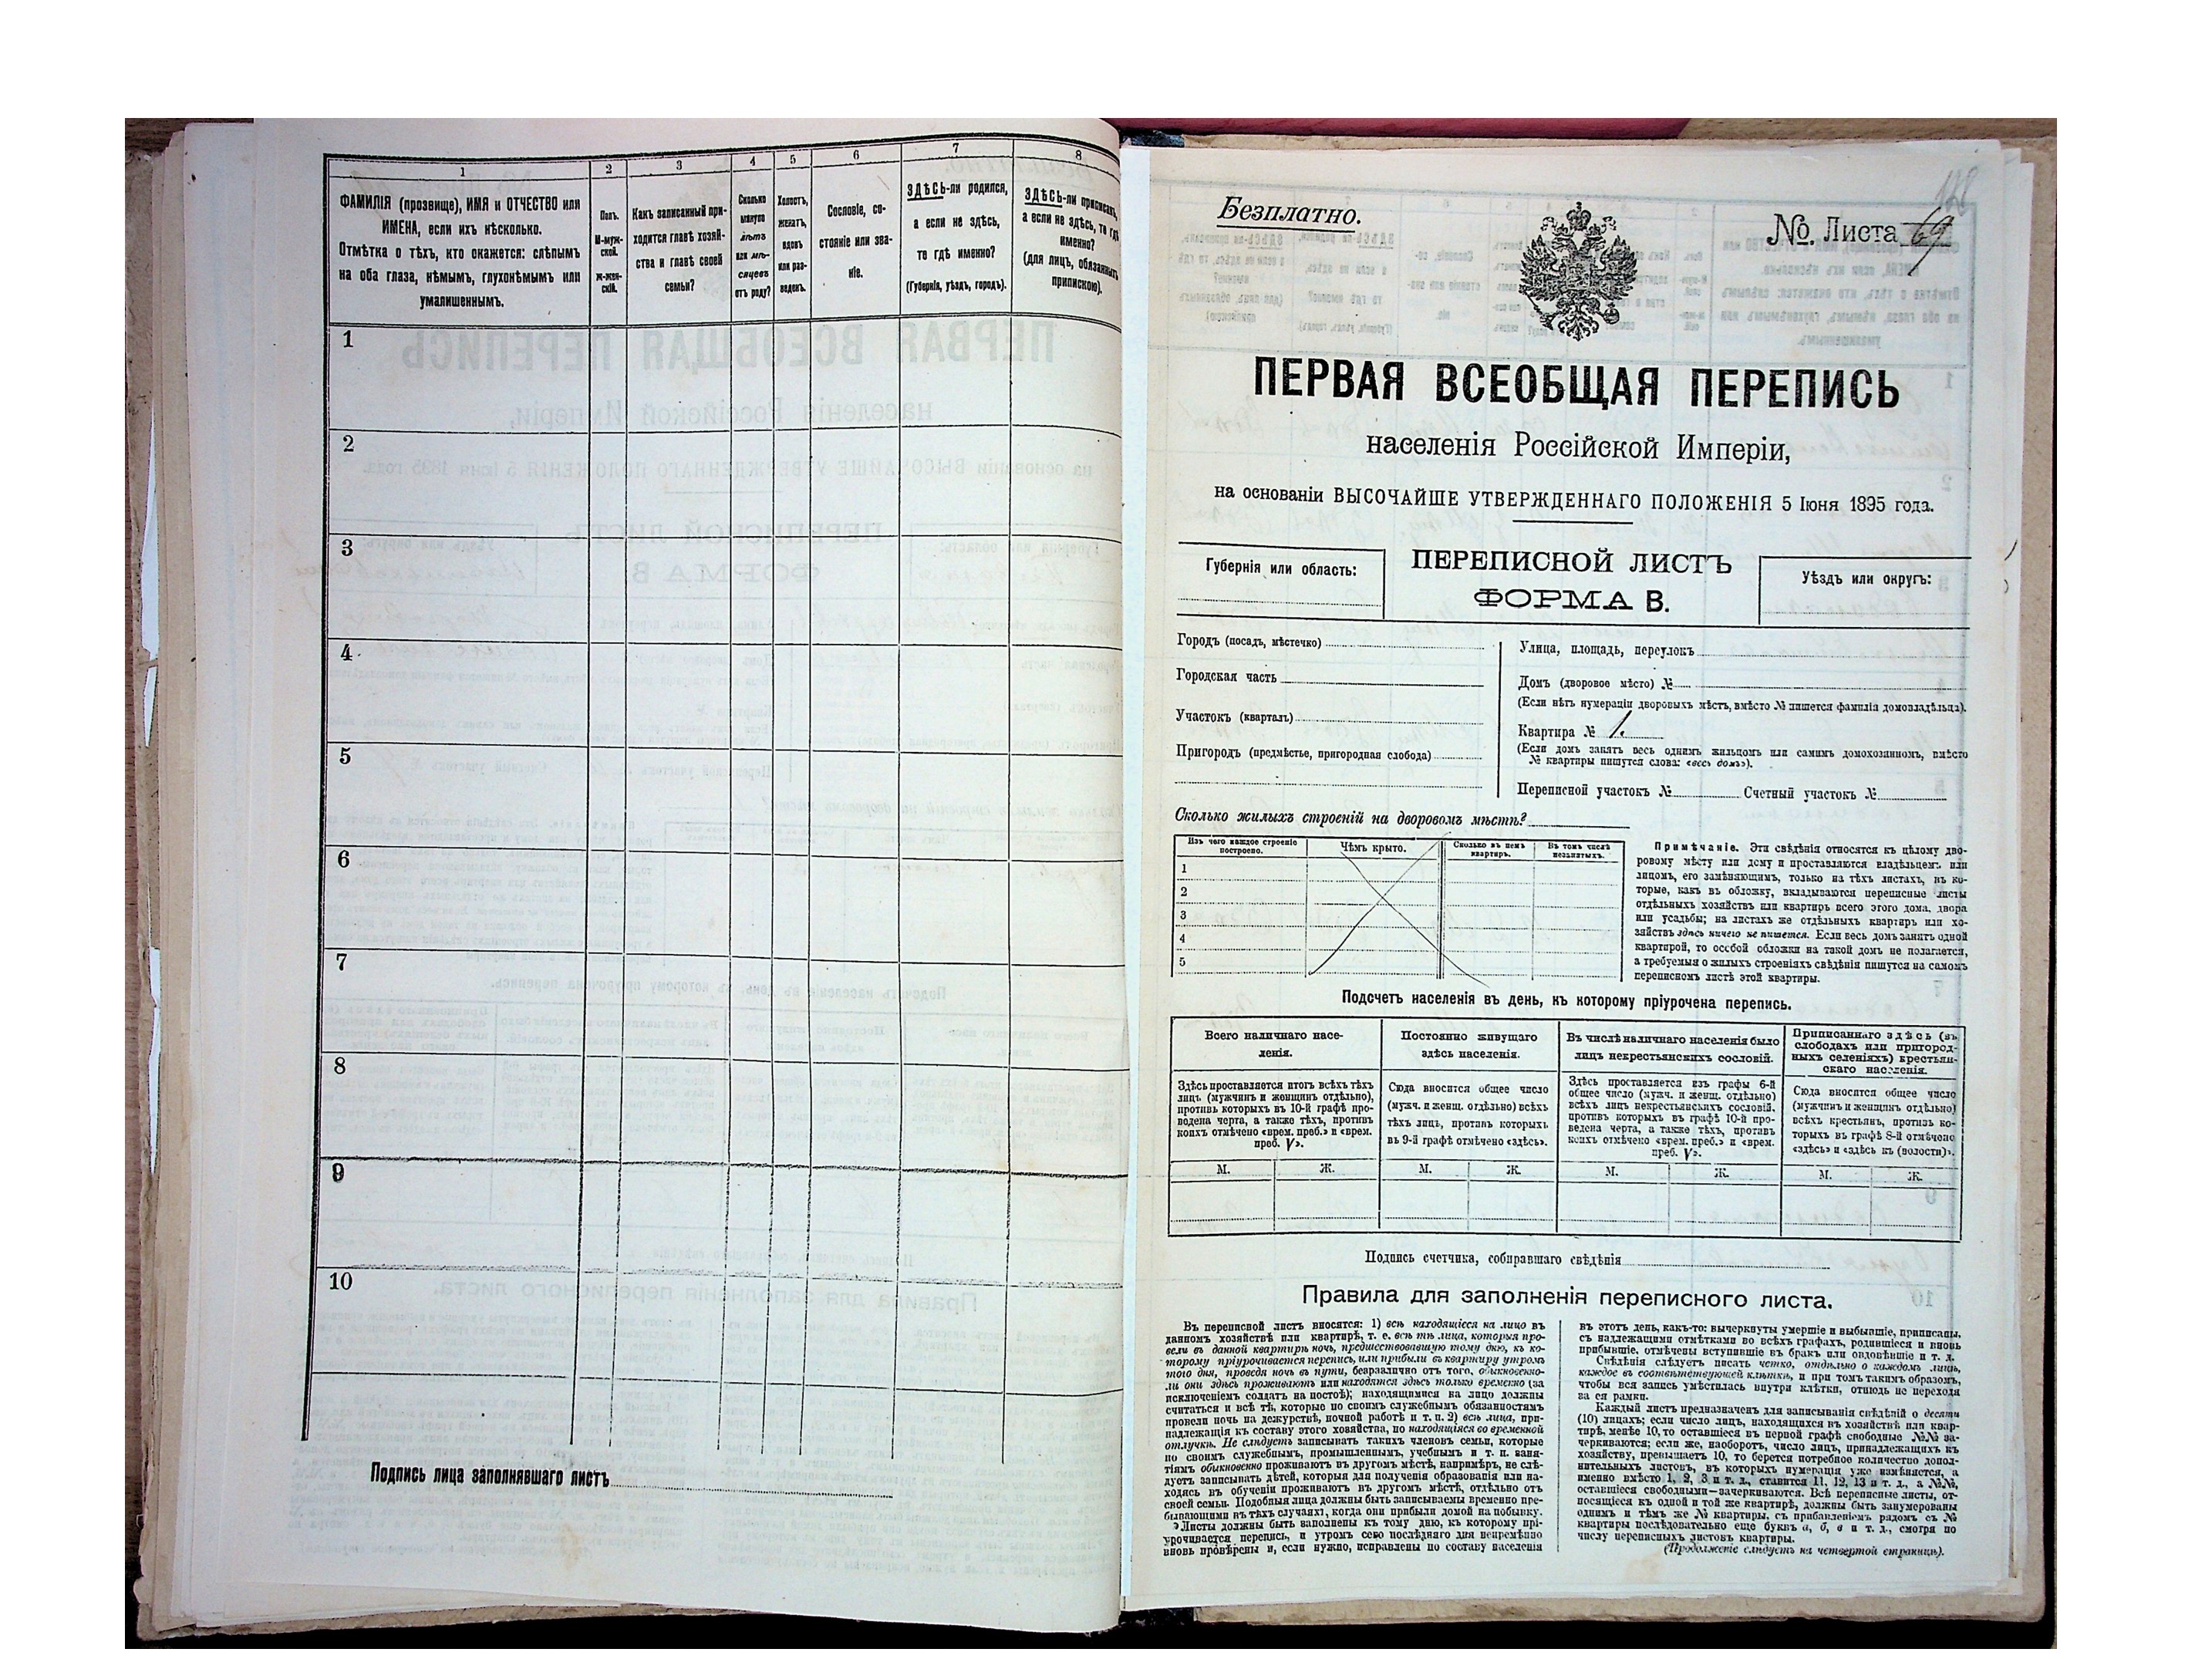 1
ФАМИЛІЯ (прозвище), ИМЯ и ОТЧЕСТВО или
ИМЕНА, если ихъ нѣсколько.
Отмѣтка о тѣхъ, кто окажется: слѣпымъ
на оба глаза, нѣмымъ, глухонѣмымъ или
умалишеннымъ.
2
Полъ.
М-муж-
ской.
Ж-жен-
скій.
3
Какъ записанный при-
ходится главѣ хозяй-
ства и главѣ своей
семьи?
4
Сколько
минуло
лѣтъ
или мѣ-
сяцевъ
отъ роду?
5
Холостъ,
женатъ,
вдовъ
или раз-
веденъ.
6
Сословіе, со-
стояніе или зва-
ніе.
7
ЗДѢСЬ-ли родился,
а если не здѣсь,
то гдѣ именно?
(Губернія, уѣздъ, городъ).
8
ЗДѢСЬ-ли приписанъ,
а если не здѣсь, то гдѣ
именно?
(для лицъ, обязанныхъ
припискою).
1
2
3
4
5
6
7
8
9
10
Подпись лица заполнявшаго листъ
Безплатно.
№ Листа 69
ПЕРВАЯ ВСЕОБЩАЯ ПЕРЕПИСЬ
населенія Россійской Имперіи,
на основаніи ВЫСОЧАЙШЕ УТВЕРЖДЕННАГО ПОЛОЖЕНІЯ 5 Іюня 1895 года.
Губернія или область:
ПЕРЕПИСНОЙ ЛИСТЪ
ФОРМА В.
Уѣздъ или округъ:
Городъ (посадъ, мѣстечко)
Городская часть
Участокъ (кварталъ)
Пригородъ (предмѣстье, пригородная слобода)
Улица, площадь, переулокъ
Домъ (дворовое мѣсто) №
(Если нѣтъ нумераціи дворовыхъ мѣстъ, вмѣсто № пишется фамилія домовладѣльца).
Квартира № 1.
(Если домъ занятъ весь однимъ жильцомъ или самимъ домохозяиномъ, вмѣсто
№ квартиры пишутся слова: «весь домъ»).
Переписной участокъ № Счетный участокъ №
Сколько жилыхъ строеній на дворовомъ мѣстѣ?
Изъ чего каждое строеніе
построено.
Чѣмъ крыто.
Сколько въ немъ
квартиръ.
Въ томъ числѣ
незанятыхъ.
1
2
3
4
5
Примѣчаніе. Эти свѣдѣнія относятся къ цѣлому дво-
ровому мѣсту или дому и проставляются владѣльцемъ или
лицомъ, его замѣняющимъ, только на тѣхъ листахъ, въ ко-
торые, какъ въ обложку, вкладываются переписные листы
отдѣльныхъ хозяйствъ или квартиръ всего этого дома, двора
или усадьбы; на листахъ же отдѣльныхъ квартиръ или хо-
зяйствъ здѣсь ничего не пишется. Если весь домъ занятъ одной
квартирой, то особой обложки на такой домъ не полагается,
а требуемыя о жилыхъ строеніяхъ свѣдѣнія пишутся на самомъ
переписномъ листѣ этой квартиры.
Подсчетъ населенія въ день, къ которому пріурочена перепись.
Всего наличнаго насе-
ленія.
Здѣсь проставляется итогъ всѣхъ тѣхъ
лицъ (мужчинъ и женщинъ отдѣльно),
противъ которыхъ въ 10-й графѣ про-
ведена черта, а также тѣхъ, противъ
коихъ отмѣчено «врем. преб.» и «врем.
преб. V».
М. Ж.
Постоянно живущаго
здѣсь населенія.
Сюда вносится общее число
(мужч. и женщ. отдѣльно) всѣхъ
тѣхъ лицъ, противъ которыхъ
въ 9-й графѣ отмѣчено «здѣсь».
М. Ж.
Въ числѣ наличнаго населенія было
лицъ некрестьянскихъ сословій.
Здѣсь проставляется изъ графы 6-й
общее число (мужч. и женщ. отдѣльно)
всѣхъ лицъ некрестьянскихъ сословій,
противъ которыхъ въ графѣ 10-й про-
ведена черта, а также тѣхъ, противъ
коихъ отмѣчено «врем. преб.» и «врем.
преб. V».
М. Ж.
Приписаннаго здѣсь (въ
слободахъ или пригород-
ныхъ селеніяхъ) крестьян-
скаго населенія.
Сюда вносится общее число
(мужчинъ и женщинъ отдѣльно)
всѣхъ крестьянъ, противъ ко-
торыхъ въ графѣ 8-й отмѣчено
«здѣсь» и «здѣсь къ (волости)».
М. Ж.
Подпись счетчика, собиравшаго свѣдѣнія
Правила для заполненія переписного листа.
Въ переписной листъ вносятся: 1) всѣ находящіеся на лицо въ
данномъ хозяйствѣ или квартирѣ, т. е. всѣ тѣ лица, которыя про-
вели въ данной квартирѣ ночь, предшествовавшую тому дню, къ ко-
торому пріурочивается перепись, или прибыли въ квартиру утромъ
того дня, проведя ночь въ пути, безразлично отъ того, обыкновенно-
ли они здѣсь проживаютъ или находятся здѣсь только временно (за
исключеніемъ солдатъ на постоѣ); находящимися на лицо должны
считаться и всѣ тѣ, которые по своимъ служебнымъ обязанностямъ
провели ночь на дежурствѣ, ночной работѣ и т. п. 2) всѣ лица, при-
надлежащія къ составу этого хозяйства, но находящіяся во временной
отлучкѣ. Не слѣдуетъ записывать такихъ членовъ семьи, которые
по своимъ служебнымъ, промышленнымъ, учебнымъ и т. п. заня-
тіямъ обыкновенно проживаютъ въ другомъ мѣстѣ, напримѣръ, не слѣ-
дуетъ записывать дѣтей, которыя для полученія образованія или на-
ходясь въ обученіи проживаютъ въ другомъ мѣстѣ, отдѣльно отъ
своей семьи. Подобныя лица должны быть записываемы временно пре-
бывающими въ тѣхъ случаяхъ, когда они прибыли домой на побывку.
Листы должны быть заполнены къ тому дню, къ которому прі-
урочивается перепись, и утромъ сего послѣдняго дня непремѣнно
вновь провѣрены и, если нужно, исправлены по составу населенія
въ этотъ день, какъ-то: вычеркнуты умершіе и выбывшіе, приписаны,
съ надлежащими отмѣтками во всѣхъ графахъ, родившіеся и вновь
прибывшіе, отмѣчены вступившіе въ бракъ или овдовѣвшіе и т. д.
Свѣдѣнія слѣдуетъ писать четко, отдѣльно о каждомъ лицѣ,
каждое въ соотвѣтствующей клѣткѣ, и при томъ такимъ образомъ,
чтобы вся запись умѣстилась внутри клѣтки, отнюдь не переходя
за ея рамки.
Каждый листъ предназначенъ для записыванія свѣдѣній о десяти
(10) лицахъ; если число лицъ, находящихся въ хозяйствѣ или квар-
тирѣ, менѣе 10, то оставшіеся въ первой графѣ свободные №№ за-
черкиваются; если же, наоборотъ, число лицъ, принадлежащихъ къ
хозяйству, превышаетъ 10, то берется потребное количество допол-
нительныхъ листовъ, въ которыхъ нумерація уже измѣняется, а
именно вмѣсто 1, 2, 3 и т. д., ставится 11, 12, 13 и т. д., а №№,
оставшіеся свободными—зачеркиваются. Всѣ переписные листы, от-
носящіеся къ одной и той же квартирѣ, должны быть занумерованы
однимъ и тѣмъ же № квартиры, съ прибавленіемъ рядомъ съ №
квартиры послѣдовательно еще буквъ а, б, в и т. д., смотря по
числу переписныхъ листовъ квартиры.
(Продолженіе слѣдуетъ на четвертой страницѣ).